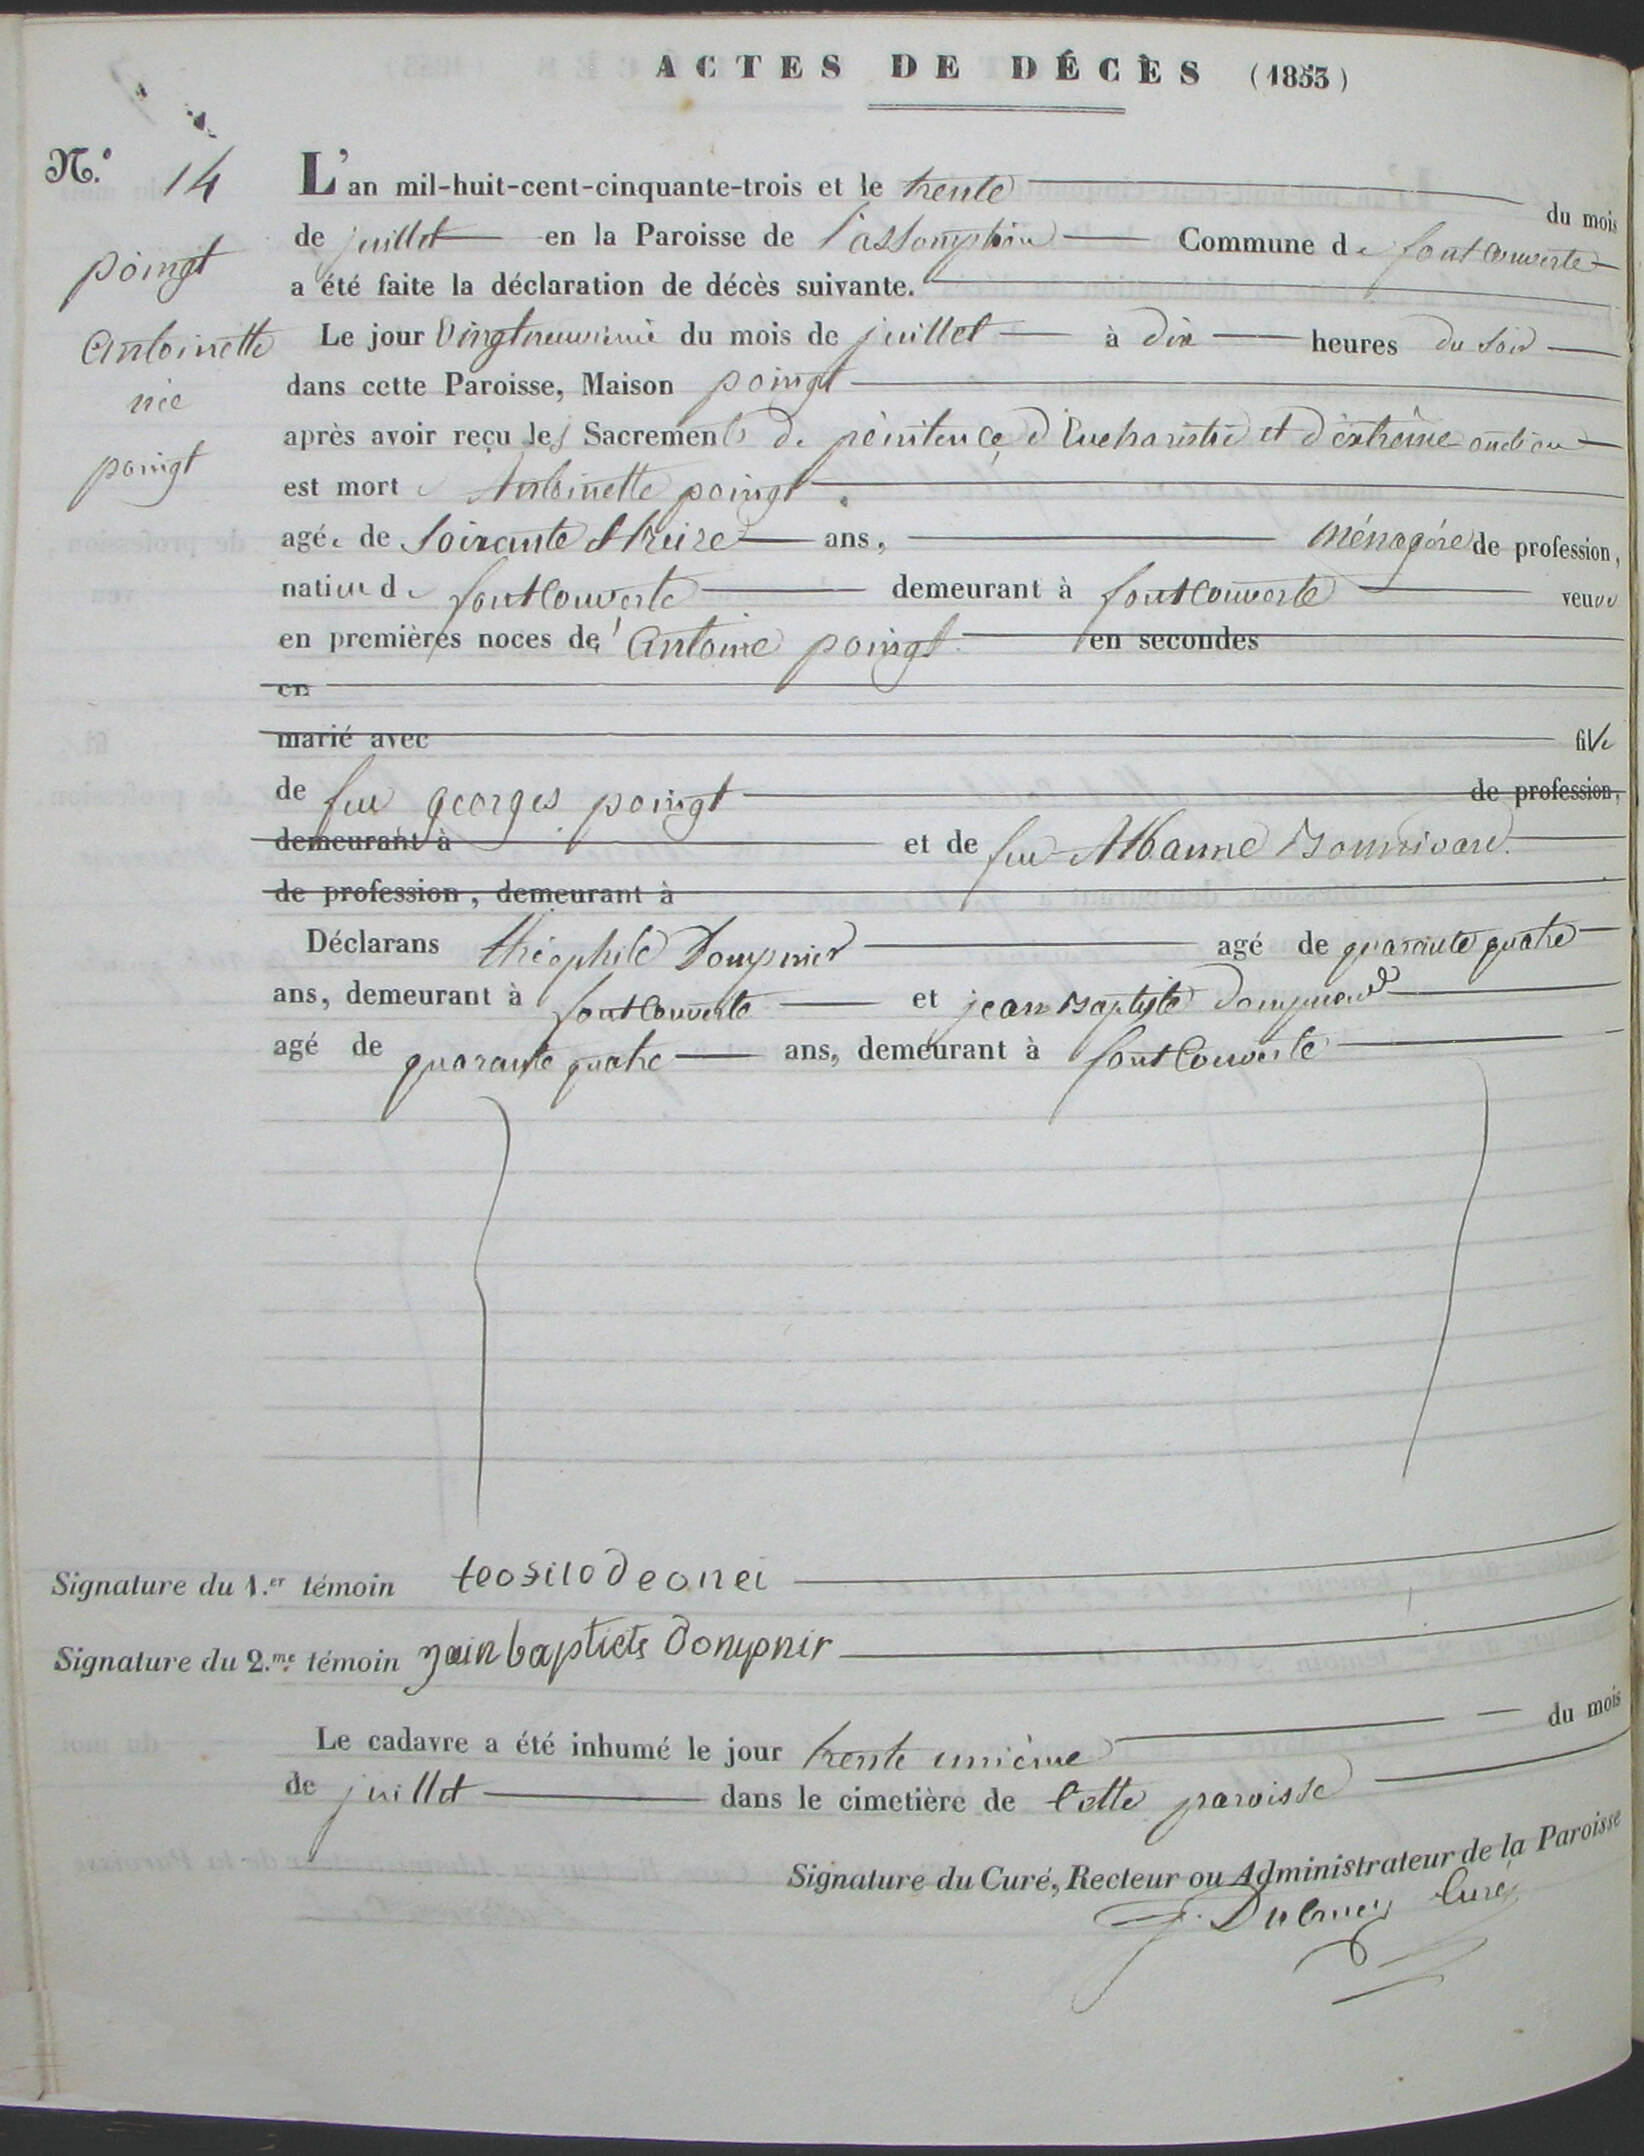 ACTES DE DÉCÈS (1853)
N.° 14
poingt
Antoinette
née
poingt
L'an mil-huit-cent-cinquante-trois et le trente du mois
de juillet en la Paroisse de l'assomption Commune de fontcouverte
a été faite la déclaration de décès suivante.
Le jour vingtneuvieme du mois de juillet à dix heures du soir
dans cette Paroisse, Maison poingt
après avoir reçu les Sacrements de pénitence, d'Eucharistie et d'extrême onction
est morte Antoinette poingt
agée de soixante et treize ans, ménagère de profession,
native de fontcouverte demeurant à fontcouverte veuve
en premières noces de Antoine poingt en secondes
en
marié avec fille
de feu georges poingt de profession,
demeurant à et de feu Marie Bonnivard
de profession, demeurant à
Déclarans théophile Dompnier agé de quarante quatre
ans, demeurant à fontcouverte et jean Baptiste dompnier
agé de quarante quatre ans, demeurant à fontcouverte
Signature du 1.er témoin
Signature du 2.me témoin jain baptiets dompnir
Le cadavre a été inhumé le jour trente unième du mois
de juillet dans le cimetière de Cette paroisse
Signature du Curé, Recteur ou Administrateur de la Paroisse
Curé